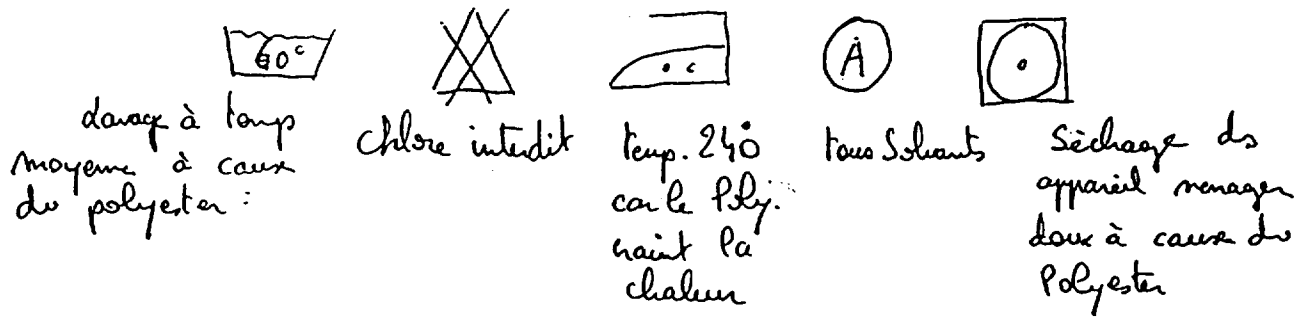 60°c
• c
A
lavage à temp
moyenne à cause
du polyester :
Chlore interdit
temp. 240°
car le Poly.
craint la
chaleur
tous Solvants
Séchage ds
appareil menager
doux à cause du
Polyester